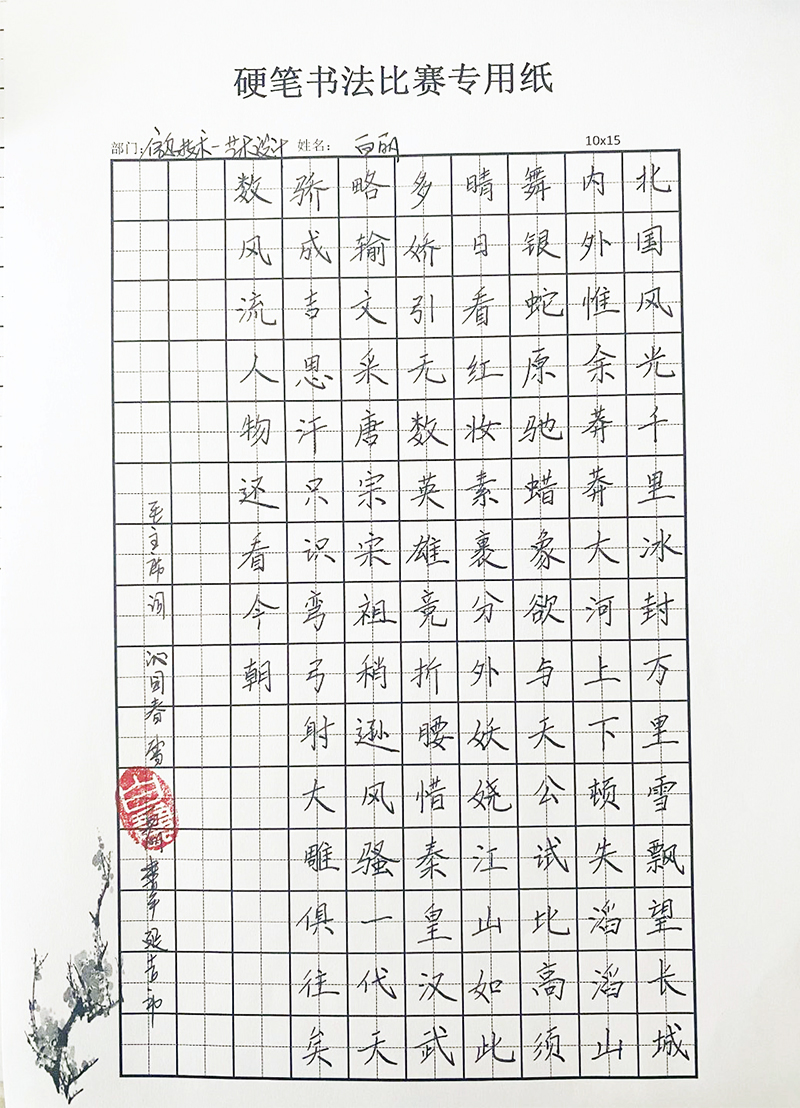 硬笔书法比赛专用纸
部门:信息技术-艺术设计 姓名: 白丽 10x15
北国风光千里冰封万里雪飘望长城
内外惟余莽莽大河上下顿失滔滔山
舞银蛇原驰蜡象欲与天公试比高须
晴日看红妆素裹分外妖娆江山如此
多娇引无数英雄竞折腰惜秦皇汉武
略输文采唐宗宋祖稍逊风骚一代天
骄成吉思汗只识弯弓射大雕俱往矣
数风流人物还看今朝
毛主席词 沁园春 雪